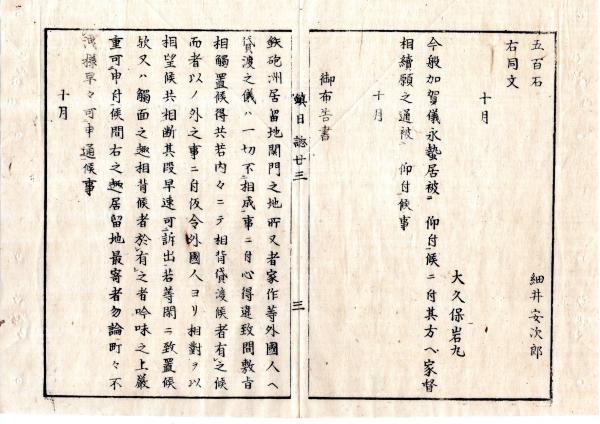 五百石　細井安次郎
右同文
十月
大久保岩丸
今般加賀儀永蟄居被　仰付候ニ付其方ヘ家督
相續願之通被　仰付候事
十月
御布告書
鎮日誌廿三　三
鉄砲洲居留地関門之地所又者家作等外國人ヘ
貸渡之儀ハ一切不相成事ニ付心得違致間敷旨
相觸置候得共若内々ニテ相背貸渡候者有之候
而者以ノ外之事ニ付仮令外國人ヨリ相對ヲ以
相望候共相断其段早速可訴出若等閑ニ致置候
欤又ハ觸面之趣相背候者於有之者吟味之上厳
重可申付候間右之趣居留地最寄者勿論町々不
洩様早々可申通候事
十月